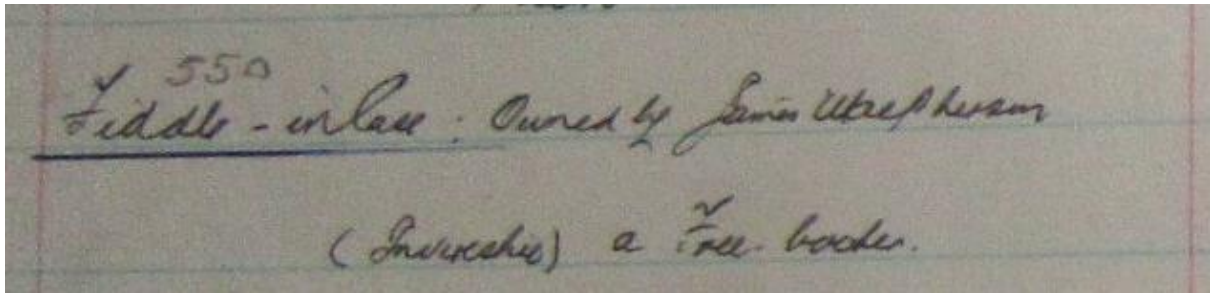 550
Fiddle - in Case : Owned by James Macpherson
(Invereshie) a Free-booter.